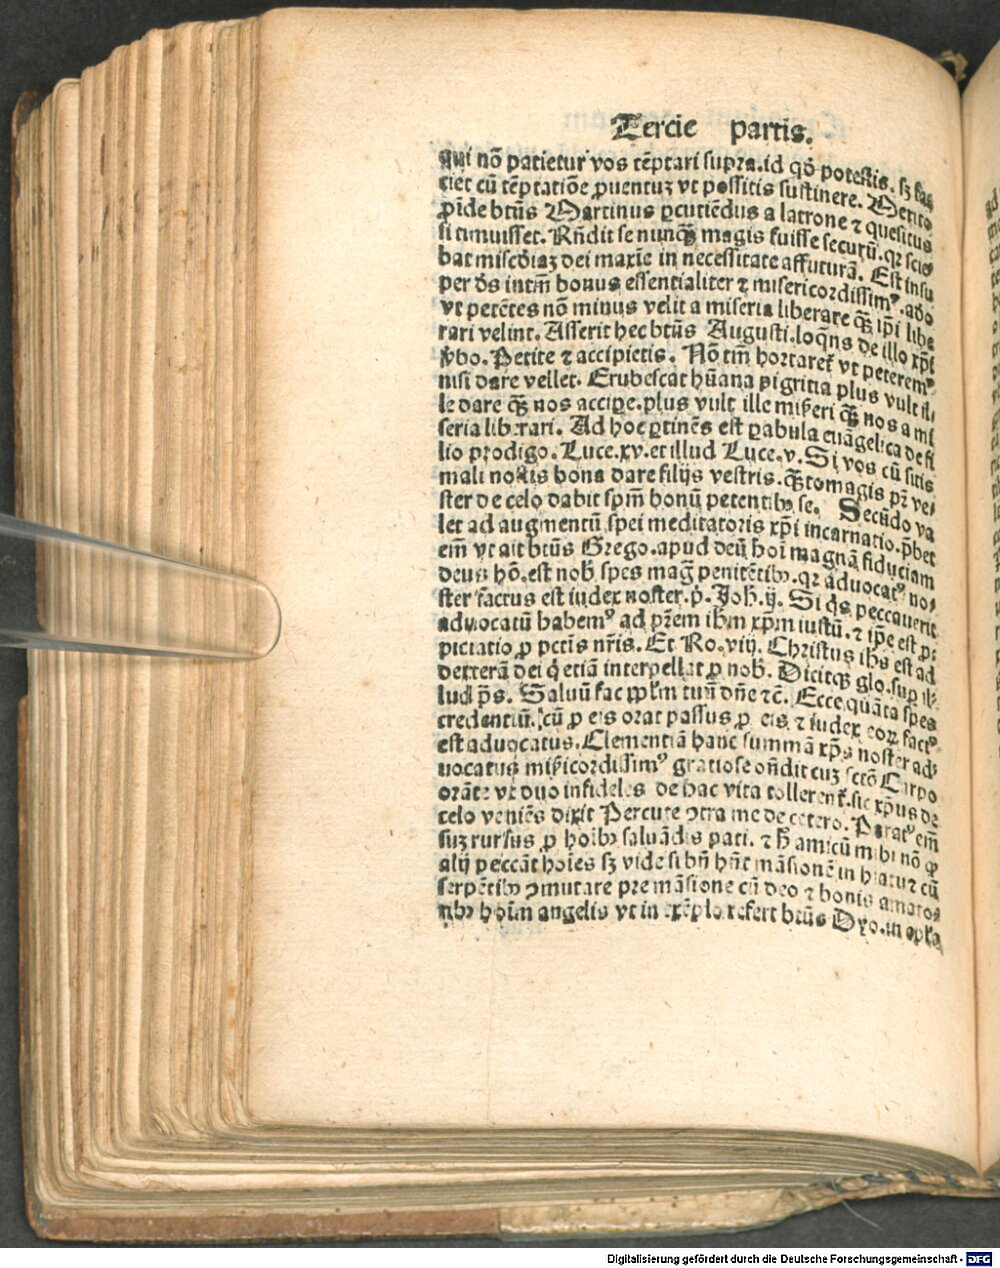 Tercie partis.
qui nō patietur vos tēptari supra.id qḋ potestis. sꝫ fa⸗
ciet cū tēptatiōe ꝓuentuꝫ vt possitis sustinere. Merito
ꝓīde btūs Martinus ꝑcutiēdus a latrone ⁊ quesitus
si timuisset. Rn̄dit se nunqꝫ̄ magis fuisse securū. qꝛ scie⸗
bat miscḋiaꝫ dei maxīe in necessitate affuturā. Est insu
per d̄s intm̄ bonus essentialiter ⁊ misericordissimꝰ. adeo
vt petētes nō minus velit a miseria liberare qꝫ̄ ip̄i libe
rari velint. Asserit hec btūs Augusti.loqn̄s de illo xp̄i
v̄bo. Petite ⁊ accipietis. Nō tm̄ hortaret̄ vt peteremꝰ
nisi dare vellet. Erubescat hūana pigritia plus vult il⸗
le dare qꝫ̄ nos accipe.plus vult ille mis̄eri qꝫ̄ nos a mi
seria liberari. Ad hoc ꝑtinēs est ꝑabula euāgelica de fi
lio prodigo. Luce.xv.et illud Luce.v. Si vos cū sitis
mali nostis bona dare filijs vestris.qꝫ̄tomagis pr̄ ve⸗
ster de celo dabit sp̄m bonū petentibꝫ se. Secūdo va
let ad augmentū spei meditatoris xp̄i incarnatio.p̄bet
em̄ vt ait btūs Grego.apud deū hoī magnā fiduciam
deus hō.est nob̄ spes maḡ penitētibꝫ.qꝛ aduocatꝰ no⸗
ster factus est iudex noster.p̄. Joh̄.ij. Si q̄s peccauerit
aduocatū habemꝰ ad pr̄em ih̄m xp̄m iustū.⁊ ip̄e est ꝓ⸗
piciatio ꝓ pctīs nr̄is. Et Ro.viij. Christus ih̄s est ad
dexterā dei q̇ etiā interpellat ꝓ nob̄. Dicitqꝫ glo.sup il⸗
lud p̄s. Saluū fac ppl̄m tuū dn̄e ⁊c̄. Ecce quāta spes
credentiū. cū ꝓ eis orat passus ꝓ eis ⁊ iudex eoꝝ factꝰ
est aduocatus. Clementiā hanc summā xp̄s noster ad⸗
uocatus mis̄icordissimꝰ gratiose on̄dit cuꝫ sctō Carpo
orāte vt duo infideles de hac vita tollerent̄.sic xp̄us de
celo veniēs dixit Percute ꝯtra me de cetero. Paratꝰ em̄
suꝫ rursus ꝓ hoībꝫ saluādis pati. ⁊ h̄ amicū mihi nō ꝙ
alij peccāt hoīes sꝫ vide si bn̄ hn̄t māsionē in hiatu ⁊ cū
serpētibꝫ ꝯmutare pre māsione cū deo ⁊ bonis amato⸗
ribꝫ hoīm angelis vt in exēplo refert btūs Dyo.in ep̄la
Digitalisierung gefördert durch die Deutsche Forschungsgemeinschaft - DFG